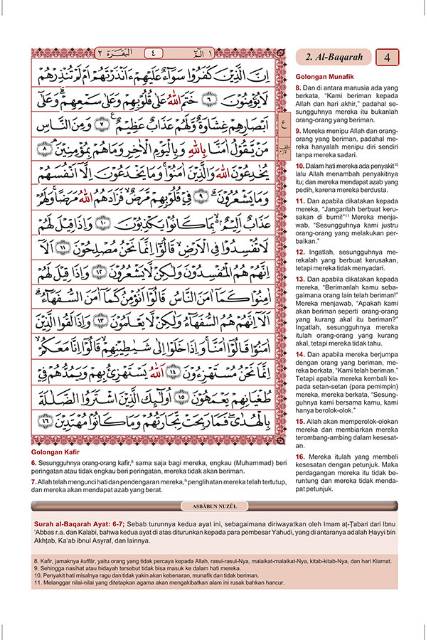 ٢ البقرة
٤
١ الم
2. Al-Baqarah
4
اِنَّ الَّذِيْنَ كَفَرُوْا سَوَاۤءٌ عَلَيْهِمْ ءَاَنْذَرْتَهُمْ اَمْ لَمْ تُنْذِرْهُمْ
لَا يُؤْمِنُوْنَ ٦ خَتَمَ اللّٰهُ عَلٰى قُلُوْبِهِمْ وَعَلٰى سَمْعِهِمْ وَعَلٰٓى
اَبْصَارِهِمْ غِشَاوَةٌ وَّلَهُمْ عَذَابٌ عَظِيْمٌ ٧ وَمِنَ النَّاسِ
مَنْ يَّقُوْلُ اٰمَنَّا بِاللّٰهِ وَبِالْيَوْمِ الْاٰخِرِ وَمَا هُمْ بِمُؤْمِنِيْنَ ٨
يُخٰدِعُوْنَ اللّٰهَ وَالَّذِيْنَ اٰمَنُوْا وَمَا يَخْدَعُوْنَ اِلَّآ اَنْفُسَهُمْ
وَمَا يَشْعُرُوْنَ ٩ فِيْ قُلُوْبِهِمْ مَّرَضٌ فَزَادَهُمُ اللّٰهُ مَرَضًا وَلَهُمْ
عَذَابٌ اَلِيْمٌ ۢ بِمَا كَانُوْا يَكْذِبُوْنَ ١٠ وَاِذَا قِيْلَ لَهُمْ
لَا تُفْسِدُوْا فِى الْاَرْضِ قَالُوْٓا اِنَّمَا نَحْنُ مُصْلِحُوْنَ ١١ اَلَآ
اِنَّهُمْ هُمُ الْمُفْسِدُوْنَ وَلٰكِنْ لَّا يَشْعُرُوْنَ ١٢ وَاِذَا قِيْلَ لَهُمْ
اٰمِنُوْا كَمَآ اٰمَنَ النَّاسُ قَالُوْٓا اَنُؤْمِنُ كَمَآ اٰمَنَ السُّفَهَاۤءُ
اَلَآ اِنَّهُمْ هُمُ السُّفَهَاۤءُ وَلٰكِنْ لَّا يَعْلَمُوْنَ ١٣ وَاِذَا لَقُوا الَّذِيْنَ
اٰمَنُوْا قَالُوْٓا اٰمَنَّا وَاِذَا خَلَوْا اِلٰى شَيٰطِيْنِهِمْ قَالُوْٓا اِنَّا مَعَكُمْ
اِنَّمَا نَحْنُ مُسْتَهْزِءُوْنَ ١٤ اَللّٰهُ يَسْتَهْزِئُ بِهِمْ وَيَمُدُّهُمْ فِيْ
طُغْيَانِهِمْ يَعْمَهُوْنَ ١٥ اُولٰۤىِٕكَ الَّذِيْنَ اشْتَرَوُا الضَّلٰلَةَ
بِالْهُدٰى فَمَا رَبِحَتْ تِّجَارَتُهُمْ وَمَا كَانُوْا مُهْتَدِيْنَ ١٦
Golongan Kafir
6. Sesungguhnya orang-orang kafir,⁸ sama saja bagi mereka, engkau (Muhammad) beri
peringatan atau tidak engkau beri peringatan, mereka tidak akan beriman.
7. Allah telah mengunci hati dan pendengaran mereka,⁹ penglihatan mereka telah tertutup,
dan mereka akan mendapat azab yang berat.
Golongan Munafik
8. Dan di antara manusia ada yang
berkata, "Kami beriman kepada
Allah dan hari akhir," padahal se-
sungguhnya mereka itu bukanlah
orang-orang yang beriman.
9. Mereka menipu Allah dan orang-
orang yang beriman, padahal me-
reka hanyalah menipu diri sendiri
tanpa mereka sadari.
10. Dalam hati mereka ada penyakit¹⁰
lalu Allah menambah penyakitnya
itu; dan mereka mendapat azab yang
pedih, karena mereka berdusta.
11. Dan apabila dikatakan kepada
mereka, "Janganlah berbuat keru-
sakan di bumi!"¹¹ Mereka menja-
wab, "Sesungguhnya kami justru
orang-orang yang melakukan per-
baikan."
12. Ingatlah, sesungguhnya me-
rekalah yang berbuat kerusakan,
tetapi mereka tidak menyadari.
13. Dan apabila dikatakan kepada
mereka, "Berimanlah kamu seba-
gaimana orang lain telah beriman!"
Mereka menjawab, "Apakah kami
akan beriman seperti orang-orang
yang kurang akal itu beriman?"
Ingatlah, sesungguhnya mereka
itulah orang-orang yang kurang
akal, tetapi mereka tidak tahu.
14. Dan apabila mereka berjumpa
dengan orang yang beriman, me-
reka berkata, "Kami telah beriman."
Tetapi apabila mereka kembali ke-
pada setan-setan (para pemimpin)
mereka, mereka berkata, "Sesung-
guhnya kami bersama kamu, kami
hanya berolok-olok."
15. Allah akan memperolok-olokan
mereka dan membiarkan mereka
terombang-ambing dalam kesesat-
an.
16. Mereka itulah yang membeli
kesesatan dengan petunjuk. Maka
perdagangan mereka itu tidak be-
runtung dan mereka tidak menda-
pat petunjuk.
ASBĀBUN NUZŪL
Surah al-Baqarah Ayat: 6-7; Sebab turunnya kedua ayat ini, sebagaimana diriwayatkan oleh Imam aṭ-Ṭabari dari Ibnu
'Abbas r.a. dan Kalabi, bahwa kedua ayat di atas diturunkan kepada para pembesar Yahudi, yang diantaranya adalah Hayyi bin
Akhṭab, Ka'ab ibnul Asyraf, dan lainnya.
8. Kafir, jamaknya kuffār, yaitu orang yang tidak percaya kepada Allah, rasul-rasul-Nya, malaikat-malaikat-Nya, kitab-kitab-Nya, dan hari Kiamat.
9. Sehingga nasihat atau hidayah tersebut tidak bisa masuk ke dalam hati mereka.
10. Penyakit hati misalnya ragu dan tidak yakin akan kebenaran, munafik dan tidak beriman.
11. Melanggar nilai-nilai yang ditetapkan agama akan mengakibatkan alam ini rusak bahkan hancur.